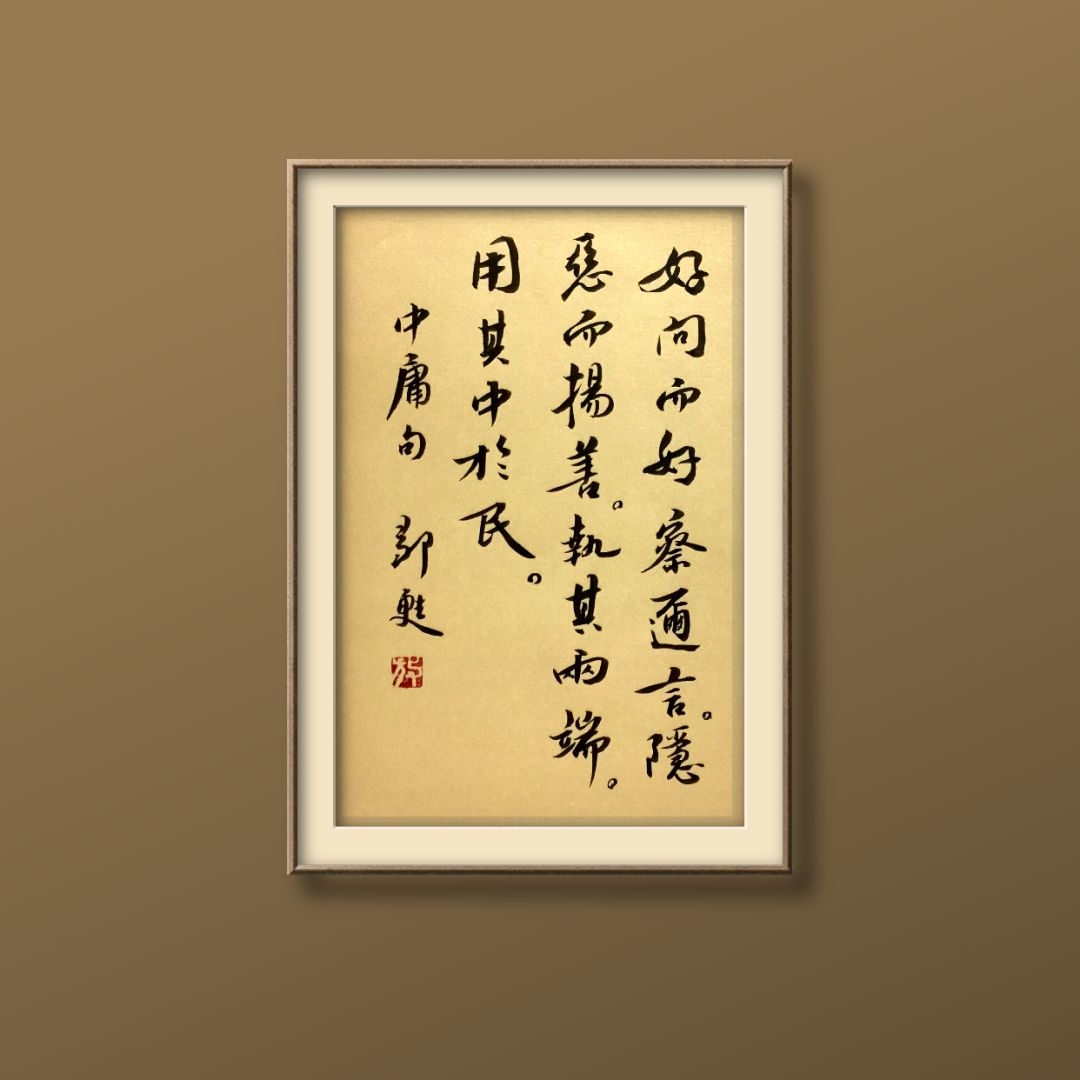 好問而好察邇言。隱
惡而揚善。執其兩端。
用其中於民。
中庸句 甦